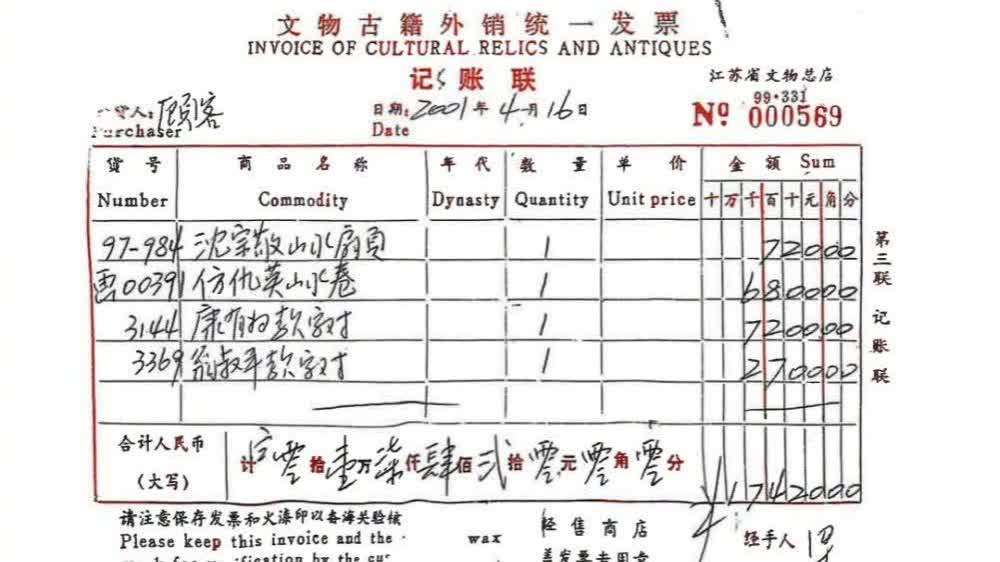 文物古籍外销统一发票
INVOICE OF CULTURAL RELICS AND ANTIQUES
记账联
江苏省文物总店
99·331
货人: 顾客 日期: 2001年4月16日 Nº 000569
Purchaser Date
货号 商品名称 年代 数量 单价 金额 Sum
Number Commodity Dynasty Quantity Unit price 十万千百十元角分
97-984 沈宗敬山水扇页 1 72000
画00391 仿仇英山水卷 1 680000
3144 康有为款字对 1 720000
3369 翁叔平款字对 1 270000
合计人民币 计 零拾壹万柒仟肆佰贰拾零元零角零分 ¥1742000
(大写)
第三联 记账联
请注意保存发票和火漆印以备海关验核
Please keep this invoice and the wax
经售商店
经手人
盖发票专用章